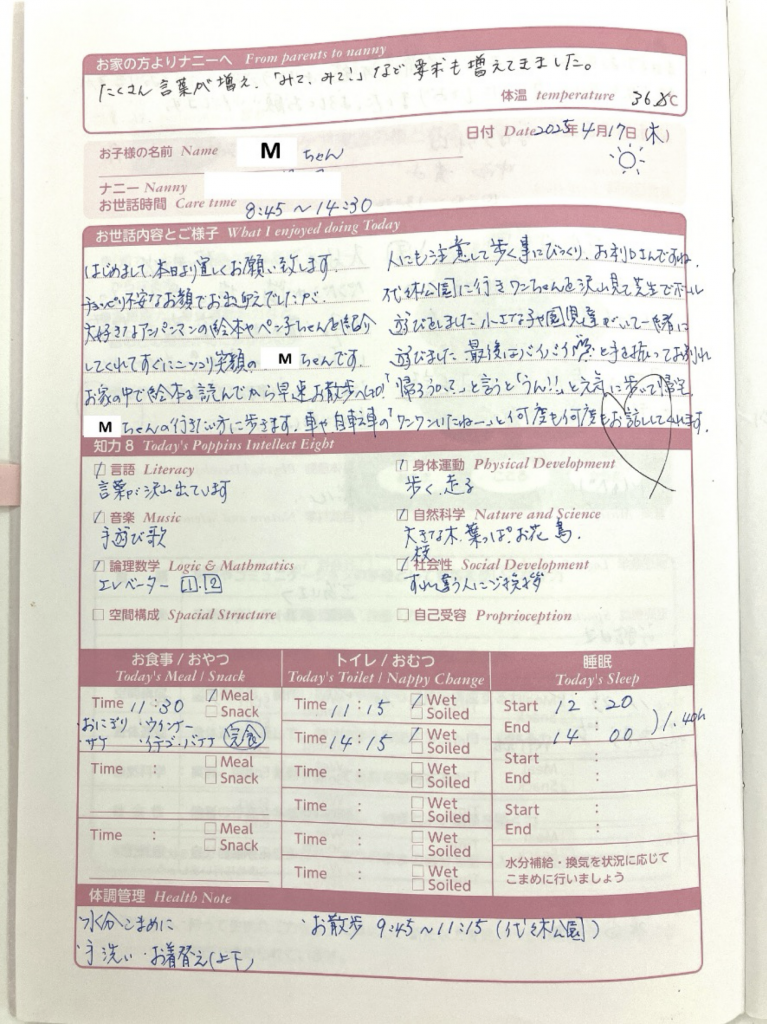 お家の方よりナニーへ From parents to nanny
たくさん言葉が増え、「みて、みて!」など要求も増えてきました。
体温 temperature 36.8℃
日付 Date 2025年4月17日(木)
お子様の名前 Name M ちゃん
ナニー Nanny
お世話時間 Care time 8:45〜14:30
お世話内容とご様子 What I enjoyed doing Today
はじめまして、本日より宜しくお願い致します。
チョッピリ不安なお顔でお出迎えでしたが、
大好きなアンパンマンの絵本やペン子ちゃんを紹介
してくれてすぐにニッコリ笑顔の M ちゃんです
お家の中で絵本を読んでから早速お散歩へGO!
M ちゃんの行きたい方に歩きます。車や自転車の
人にも注意して歩く事にびっくり、お利口さんですね。
代々木公園に行きワンちゃんを沢山見て芝生でボール
遊びをしました 小さな子や園児達がいて一緒に
遊びました 最後はバイバイと手を振ってお別れ
「帰ろうか?」と言うと「うん!!」と元気に歩いて帰宅
「ワンワンいたねー」と何度も何度もお話ししてくれます。
知力8 Today's Poppins Intellect Eight
言語 Literacy
言葉が沢山出ています
身体運動 Physical Development
歩く、走る
音楽 Music
手遊び歌
自然科学 Nature and Science
大きな木、葉っぱ、お花 鳥、
枝
論理数学 Logic & Mathmatics
エレベーター 1.2
社会性 Social Development
すれ違う人にご挨拶
空間構成 Spacial Structure
自己受容 Proprioception
お食事 / おやつ
Today's Meal / Snack
Time 11:30 Meal
Snack
・おにぎり ・ウインナー
・サケ ・イチゴ・バナナ 完食
Time : Meal
Snack
Time : Meal
Snack
トイレ / おむつ
Today's Toilet / Nappy Change
Time 11:15 Wet
Soiled
Time 14:15 Wet
Soiled
Time : Wet
Soiled
Time : Wet
Soiled
Time : Wet
Soiled
Time : Wet
Soiled
睡眠
Today's Sleep
Start 12:20
End 14:00 1.40h
Start :
End :
Start :
End :
水分補給・換気を状況に応じて
こまめに行いましょう
体調管理 Health Note
・水分こまめに ・お散歩 9:45〜11:15 (代々木公園)
・手洗い・お着替え(上下)